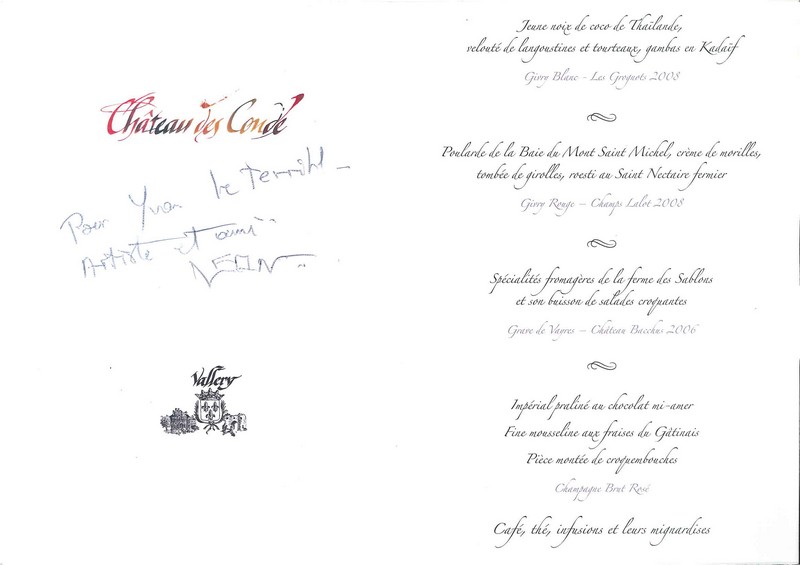 Château des Condé
Pour Yvan le Terrible
Artiste et ami
Vallery
Jeune noix de coco de Thaïlande,
velouté de langoustines et tourteaux, gambas en Kadaïf
Givry Blanc - Les Grognots 2008
Poularde de la Baie du Mont Saint Michel, crème de morilles,
tombée de girolles, roesti au Saint Nectaire fermier
Givry Rouge – Champs Lalot 2008
Spécialités fromagères de la ferme des Sablons
et son buisson de salades croquantes
Grave de Vayres – Château Bacchus 2006
Impérial praliné au chocolat mi-amer
Fine mousseline aux fraises du Gâtinais
Pièce montée de croquembouches
Champagne Brut Rosé
Café, thé, infusions et leurs mignardises